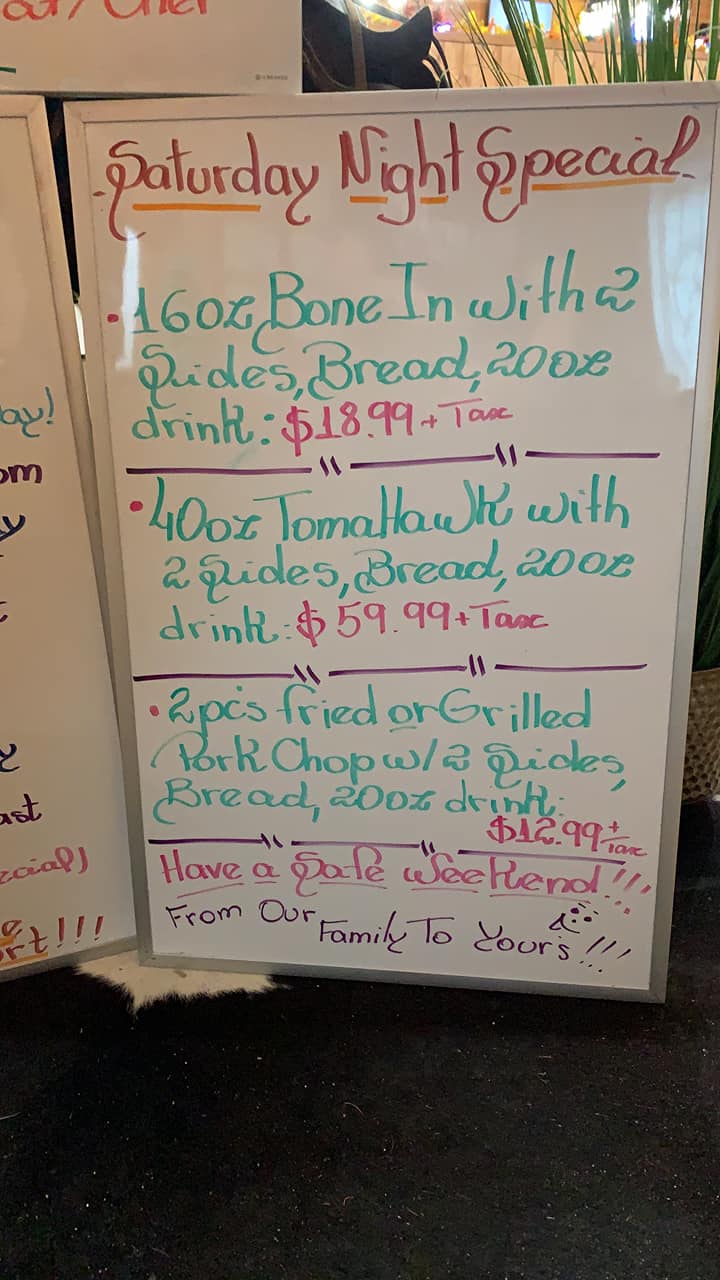 Saturday Night Special
• 16oz Bone In with 2
Sides, Bread, 20oz
drink: $18.99 + Tax
• 40oz TomaHawk with
2 Sides, Bread, 20oz
drink: $59.99 + Tax
• 2pc's fried or Grilled
Pork Chop w/2 Sides,
Bread, 20oz drink:
$12.99 + Tax
Have a Safe Weekend!!!
From Our Family To Yours!!!